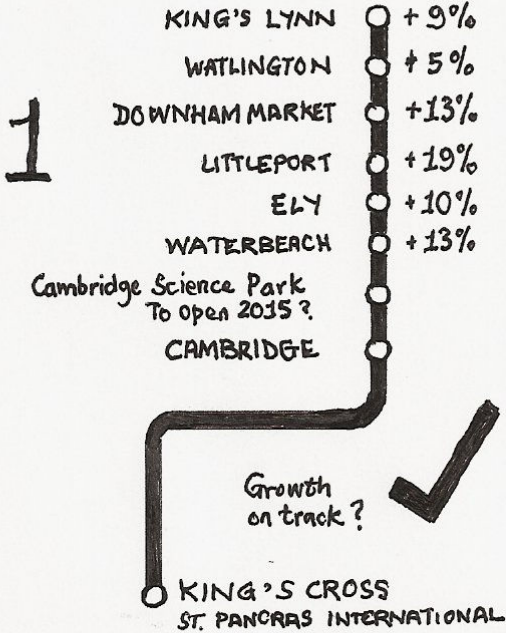 KING'S LYNN +9%
WATLINGTON +5%
DOWNHAM MARKET +13%
1
LITTLEPORT +19%
ELY +10%
WATERBEACH +13%
Cambridge Science Park
To open 2015?
CAMBRIDGE
Growth
on track?
KING'S CROSS
ST. PANCRAS INTERNATIONAL